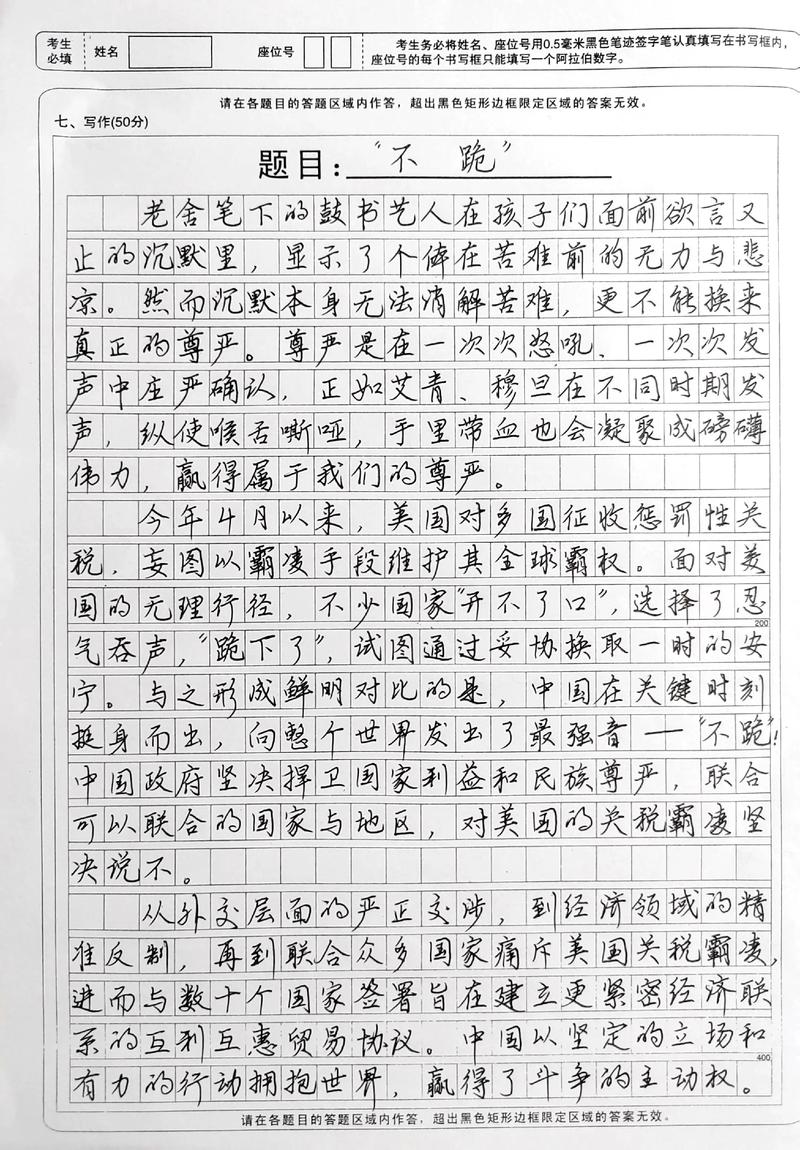 考生
必填
姓名
座位号
考生务必将姓名、座位号用0.5毫米黑色笔迹签字笔认真填写在书写框内，
座位号的每个书写框只能填写一个阿拉伯数字。
请在各题目的答题区域内作答，超出黑色矩形边框限定区域的答案无效。
七、写作(50分)
题目："不跪"
老舍笔下的鼓书艺人在孩子们面前欲言又
止的沉默里，显示了个体在苦难前的无力与悲
凉。然而沉默本身无法消解苦难，更不能换来
真正的尊严。尊严是在一次次怒吼、一次次发
声中庄严确认，正如艾青、穆旦在不同时期发
声，纵使喉舌嘶哑，手里带血也会凝聚成磅礴
伟力，赢得属于我们的尊严。
今年4月以来，美国对多国征收惩罚性关
税，妄图以霸凌手段维护其全球霸权。面对美
国的无理行径，不少国家"开不了口"，选择了忍
200
气吞声，"跪下了"，试图通过妥协换取一时的安
宁。与之形成鲜明对比的是，中国在关键时刻
挺身而出，向整个世界发出了最强音——"不跪"！
中国政府坚决捍卫国家利益和民族尊严，联合
可以联合的国家与地区，对美国的关税霸凌坚
决说不。
从外交层面的严正交涉，到经济领域的精
准反制，再到联合众多国家痛斥美国关税霸凌，
进而与数十个国家签署旨在建立更紧密经济联
系的互利互惠贸易协议。中国以坚定的立场和
400
有力的行动拥抱世界，赢得了斗争的主动权。
请在各题目的答题区域内作答，超出黑色矩形边框限定区域的答案无效。